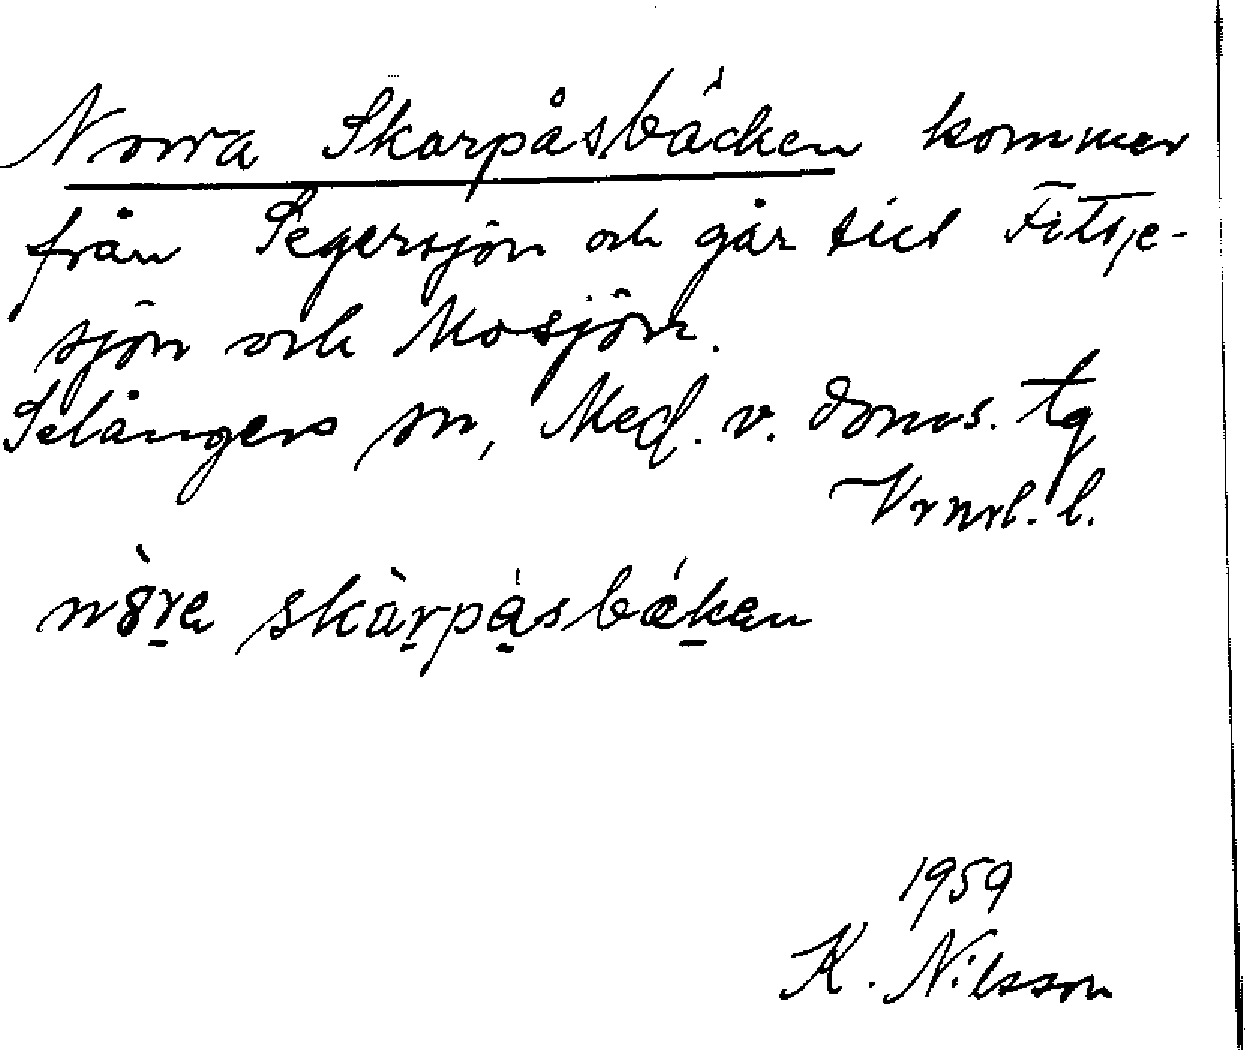 Norra Skarpåsbäcken kommer
från Segersjön och går till Fitsje-
sjön och Mosjön.
Selångers sn, Med. v. doms. tg
Vrnrl. l.
nǒra skàrpåsbäkan
1959
K. Nilsson